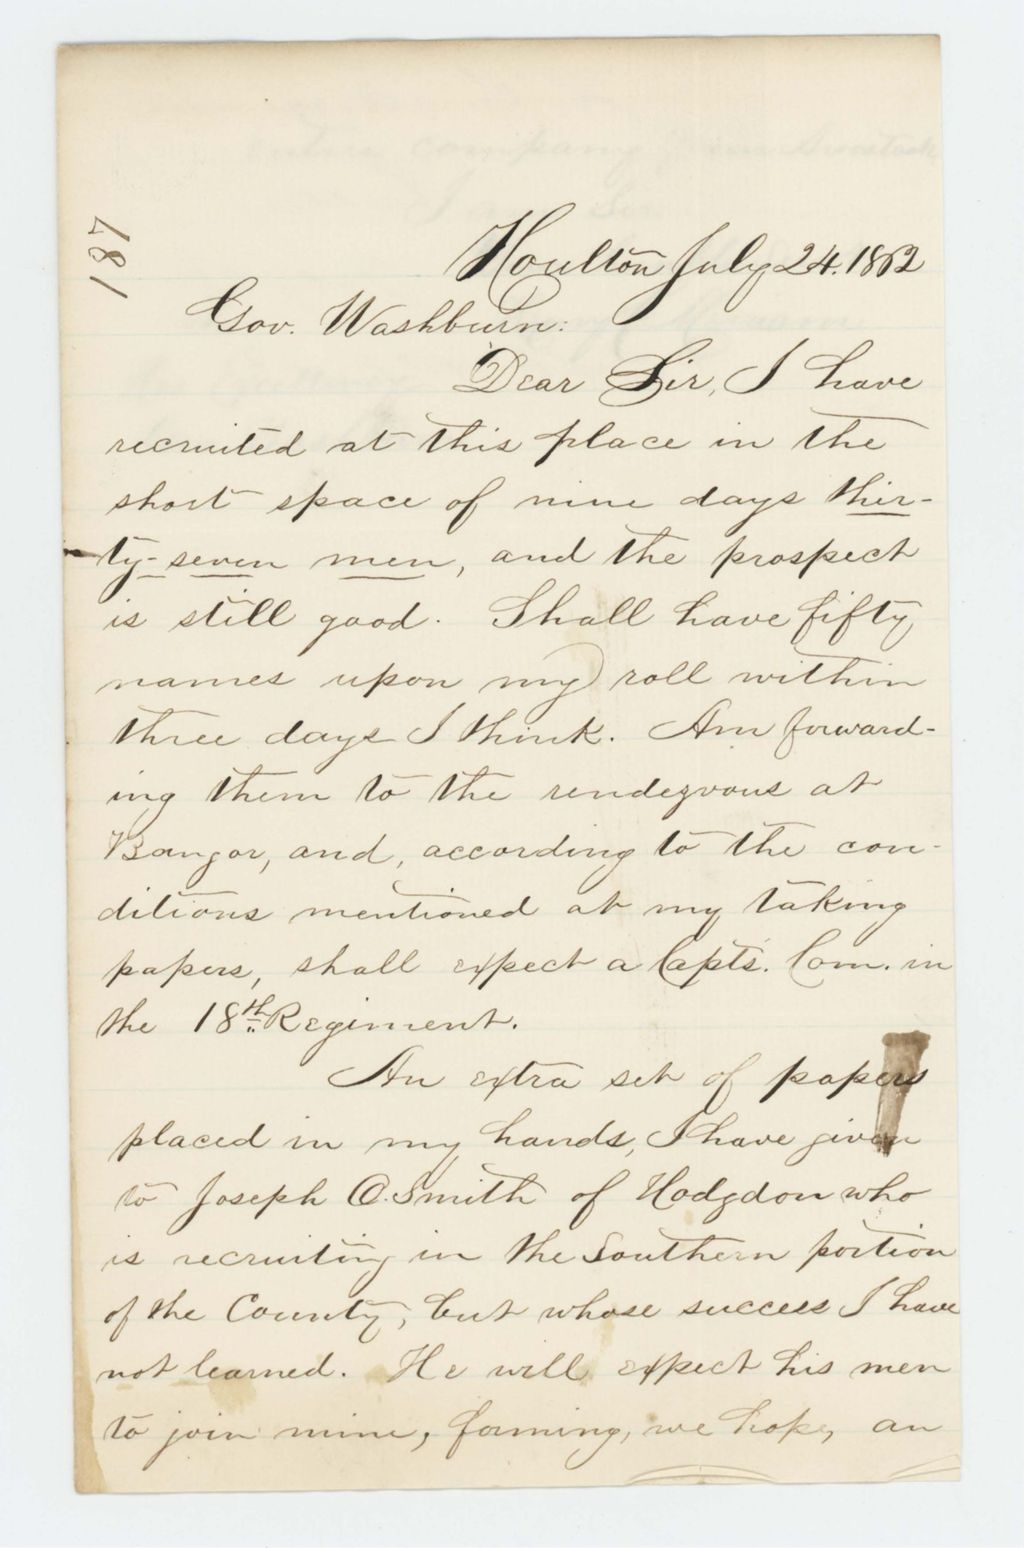 187
Houlton July 24. 1862
Gov. Washburn:
Dear Sir, I have
recruited at this place in the
short space of nine days thir-
ty-seven men, and the prospect
is still good. Shall have fifty
names upon my roll within
three days I think. Am forward-
ing them to the rendezvous at
Bangor, and, according to the con-
ditions mentioned at my taking
papers, shall expect a Capt's. Com. in
the 18th Regiment.
An extra set of papers
placed in my hands, I have given
to Joseph O. Smith of Hodgdon who
is recruiting in the Southern portion
of the County, but whose success I have
not learned. He will expect his men
to join mine, forming, we hope, an